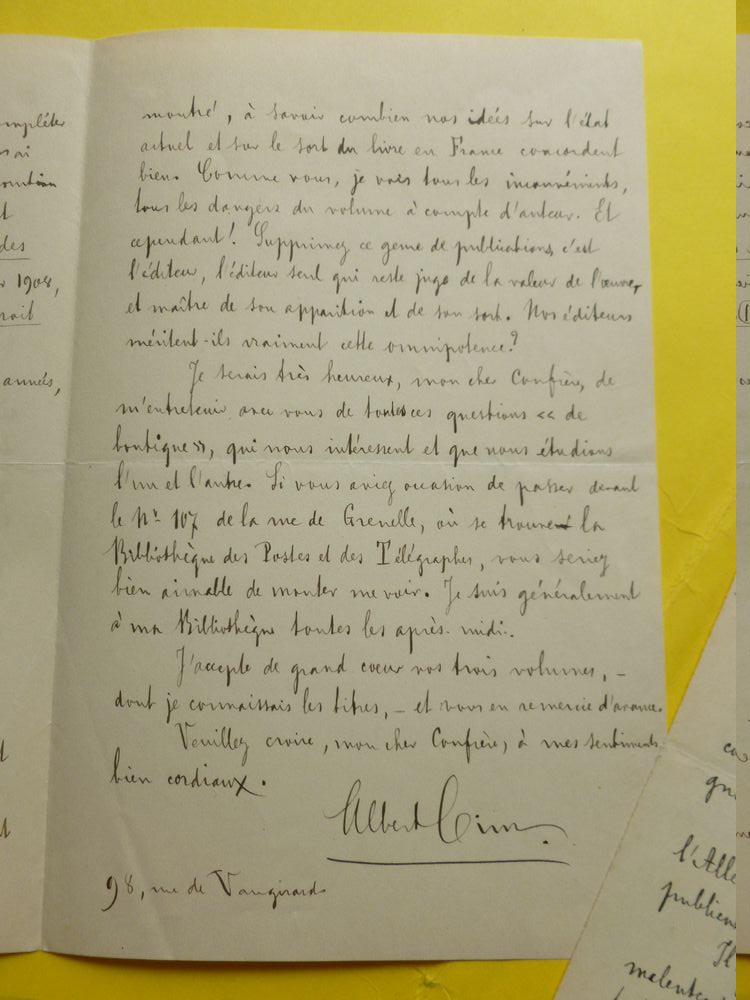 montré, à savoir combien nos idées sur l'état
actuel et sur le sort du livre en France concordent
bien. Comme vous, je vois tous les inconvénients,
tous les dangers du volume à compte d'auteur. Et
cependant! Supprimez ce genre de publications, c'est
l'éditeur, l'éditeur seul qui reste juge de la valeur de l'œuvre,
et maître de son apparition et de son sort. Nos éditeurs
méritent-ils vraiment cette omnipotence?
Je serais très heureux, mon cher Confrère, de
m'entretenir avec vous de toutes ces questions « de
boutique », qui nous intéressent et que nous étudions
l'un et l'autre. Si vous aviez occasion de passer devant
le Nº 107 de la rue de Grenelle, où se trouve la
Bibliothèque des Postes et des Télégraphes, vous seriez
bien aimable de monter me voir. Je suis généralement
à ma Bibliothèque toutes les après-midi.
J'accepte de grand cœur vos trois volumes, –
dont je connaissais les titres, – et vous en remercie d'avance.
Veuillez croire, mon cher Confrère, à mes sentiments
bien cordiaux.
Albert Cim.
98, rue de Vaugirard
mpléter
des
1908,
années,
l'Alle
publien
Il
malente